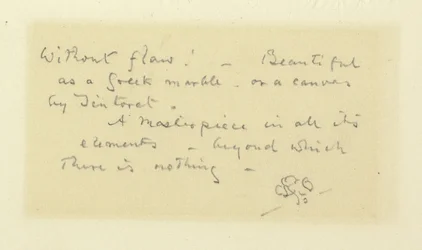 Without flaw! - Beautiful
as a Greek marble - or a canvas
by Tintoret.
A masterpiece in all its
elements - beyond which
there is nothing -